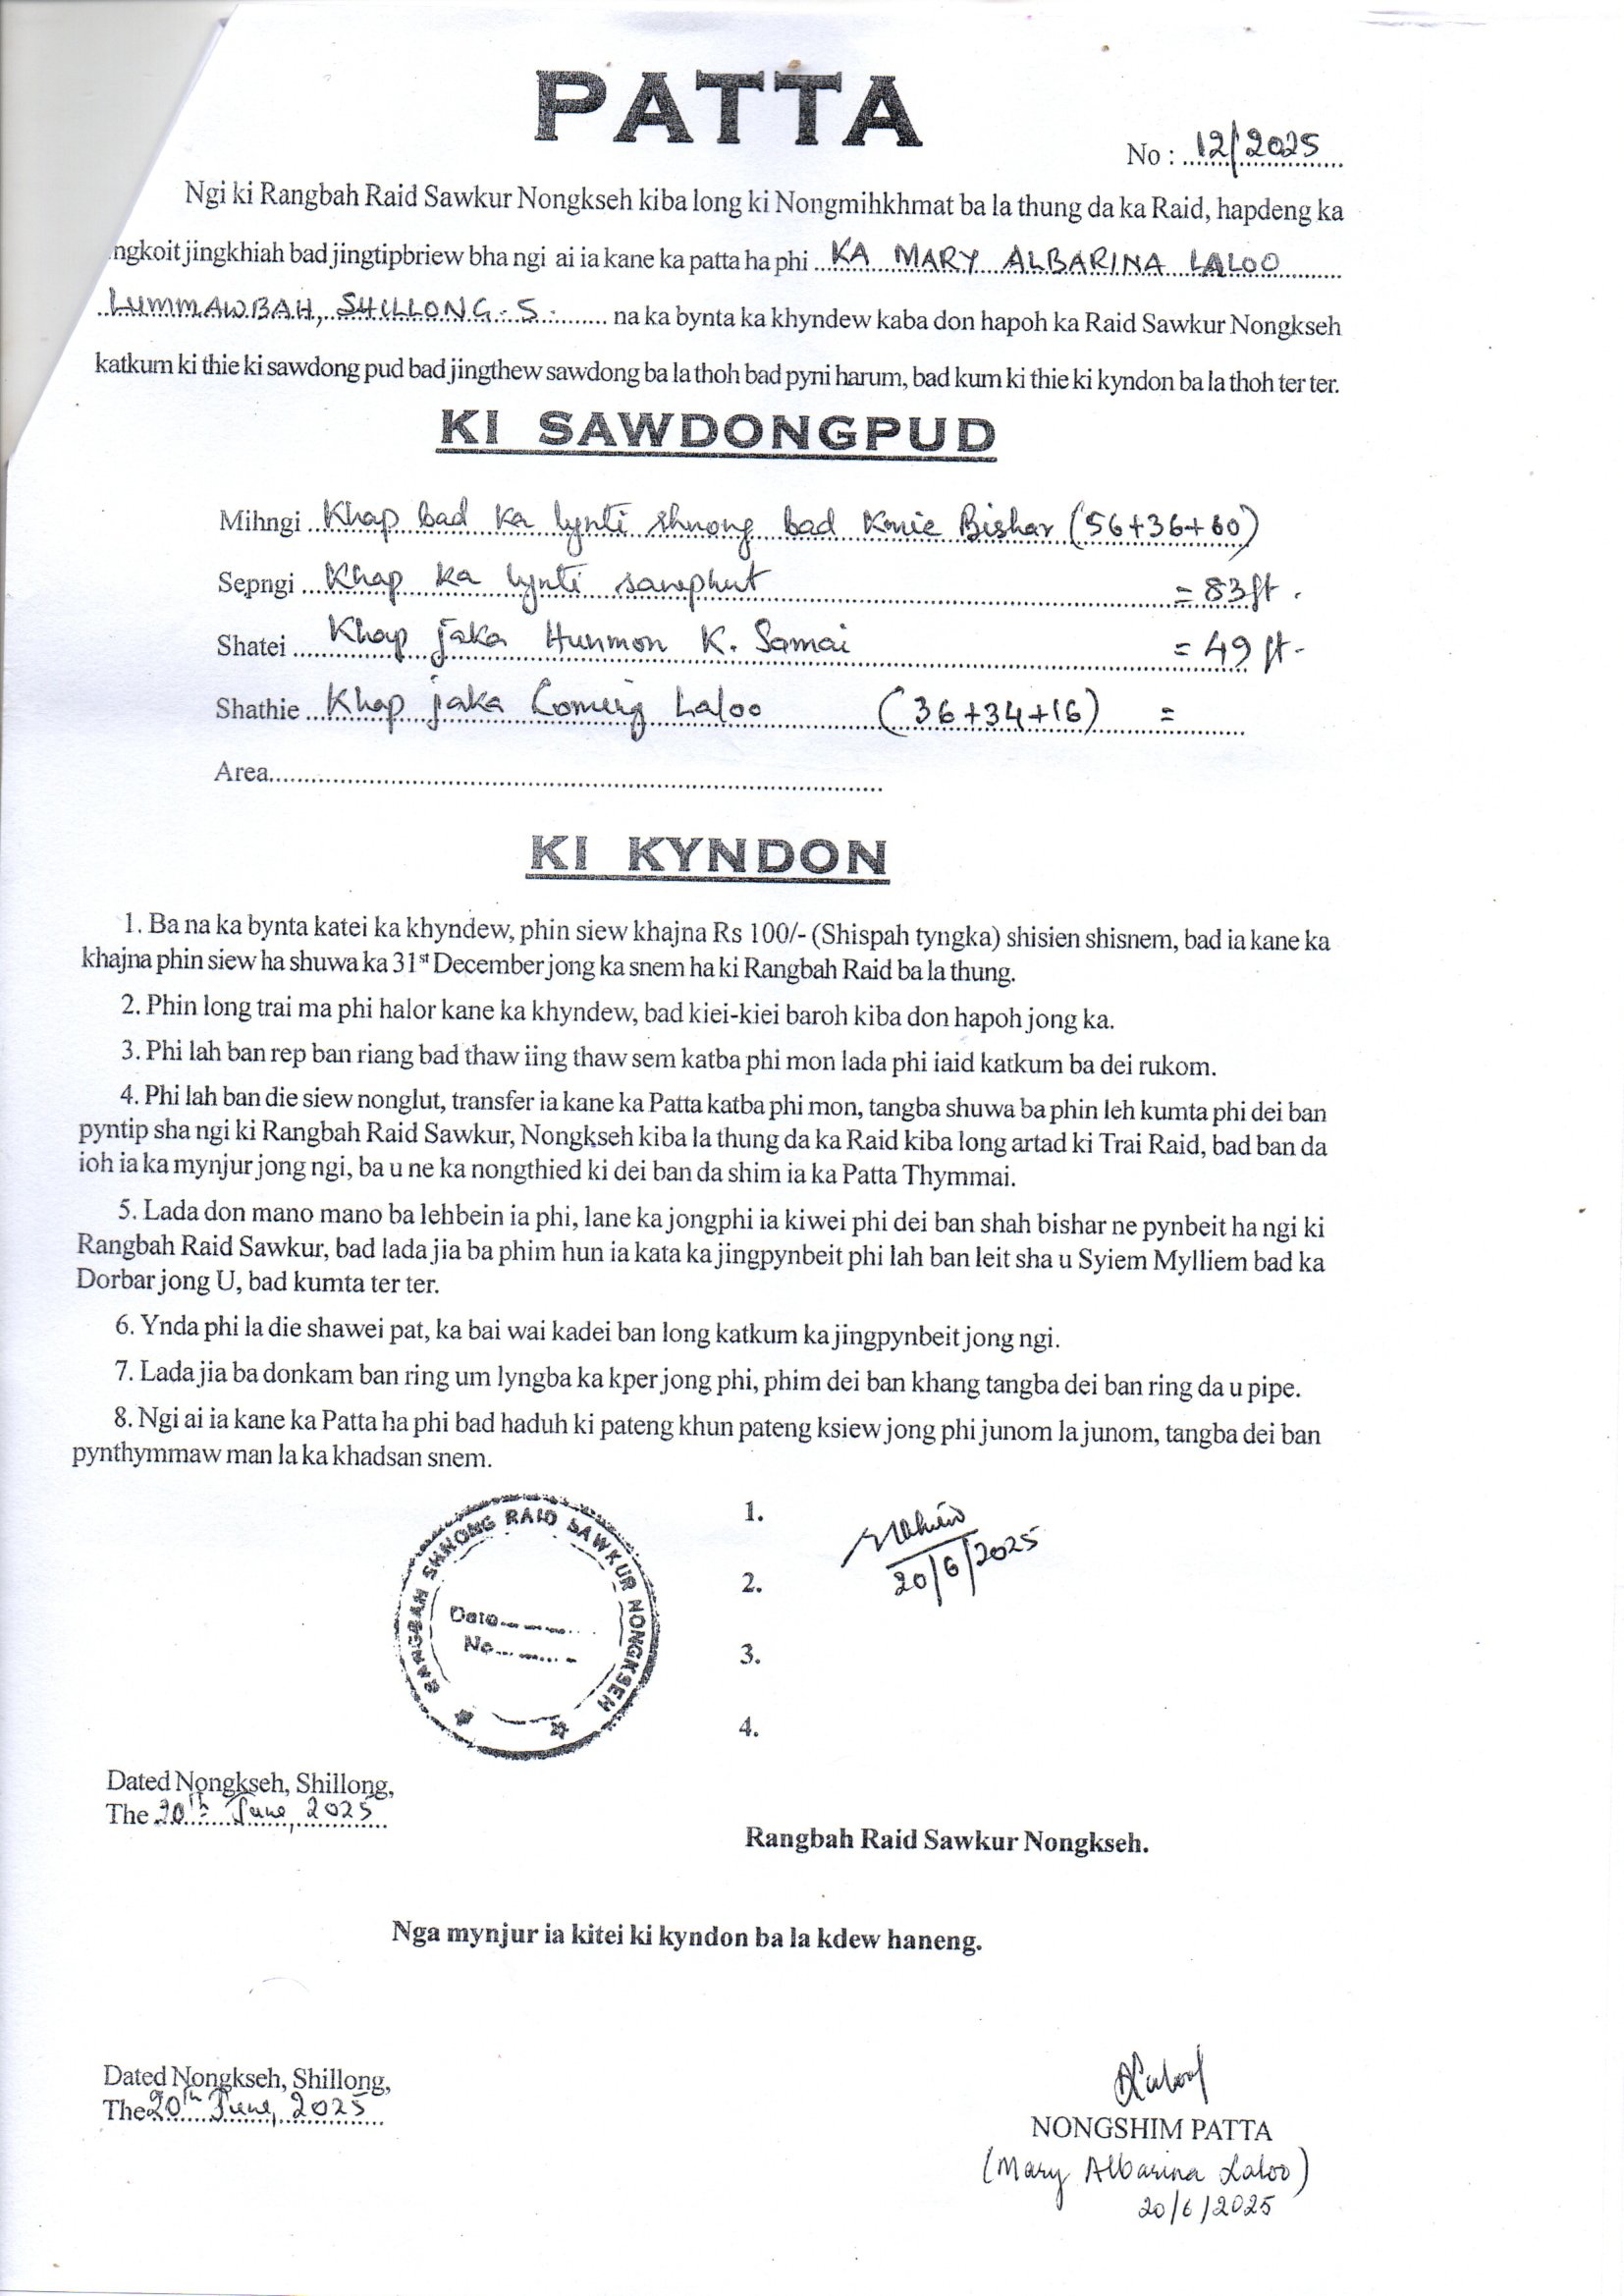 PATTA
No : 12/2025
Ngi ki Rangbah Raid Sawkur Nongkseh kiba long ki Nongmihkhmat ba la thung da ka Raid, hapdeng ka
ngkoit jingkhiah bad jingtipbriew bha ngi ai ia kane ka patta ha phi KA MARY ALBARINA LALOO
LUMMAWBAH, SHILLONG - 5. na ka bynta ka khyndew kaba don hapoh ka Raid Sawkur Nongkseh
katkum ki thie ki sawdong pud bad jingthew sawdong ba la thoh bad pyni harum, bad kum ki thie ki kyndon ba la thoh ter ter.
KI SAWDONGPUD
Mihngi Khap bad ka lynti shnong bad Kmie Bishar (56+36+60)
Sepngi Khap ka lynti = 83ft.
Shatei Khap jaka Hunmon K. Samai = 49 ft.
Shathie Khap jaka Laloo (36+34+16) =
Area
KI KYNDON
1. Ba na ka bynta katei ka khyndew, phin siew khajna Rs 100/- (Shispah tyngka) shisien shisnem, bad ia kane ka
khajna phin siew ha shuwa ka 31st December jong ka snem ha ki Rangbah Raid ba la thung.
2. Phin long trai ma phi halor kane ka khyndew, bad kiei-kiei baroh kiba don hapoh jong ka.
3. Phi lah ban rep ban riang bad thaw iing thaw sem katba phi mon lada phi iaid katkum ba dei rukom.
4. Phi lah ban die siew nonglut, transfer ia kane ka Patta katba phi mon, tangba shuwa ba phin leh kumta phi dei ban
pyntip sha ngi ki Rangbah Raid Sawkur, Nongkseh kiba la thung da ka Raid kiba long artad ki Trai Raid, bad ban da
ioh ia ka mynjur jong ngi, ba u ne ka nongthied ki dei ban da shim ia ka Patta Thymmai.
5. Lada don mano mano ba lehbein ia phi, lane ka jongphi ia kiwei phi dei ban shah bishar ne pynbeit ha ngi ki
Rangbah Raid Sawkur, bad lada jia ba phim hun ia kata ka jingpynbeit phi lah ban leit sha u Syiem Mylliem bad ka
Dorbar jong U, bad kumta ter ter.
6. Ynda phi la die shawei pat, ka bai wai kadei ban long katkum ka jingpynbeit jong ngi.
7. Lada jia ba donkam ban ring um lyngba ka kper jong phi, phim dei ban khang tangba dei ban ring da u pipe.
8. Ngi ai ia kane ka Patta ha phi bad haduh ki pateng khun pateng ksiew jong phi junom la junom, tangba dei ban
pynthymmaw man la ka khadsan snem.
RANGBAH SHNONG RAID SAWKUR NONGKSEH
Date
No
1.
20/6/2025
2.
3.
4.
Dated Nongkseh, Shillong,
The 20th June, 2025
Rangbah Raid Sawkur Nongkseh.
Nga mynjur ia kitei ki kyndon ba la kdew haneng.
Dated Nongkseh, Shillong,
The 20th June, 2025
NONGSHIM PATTA
(Mary Albarina Laloo)
20/6/2025